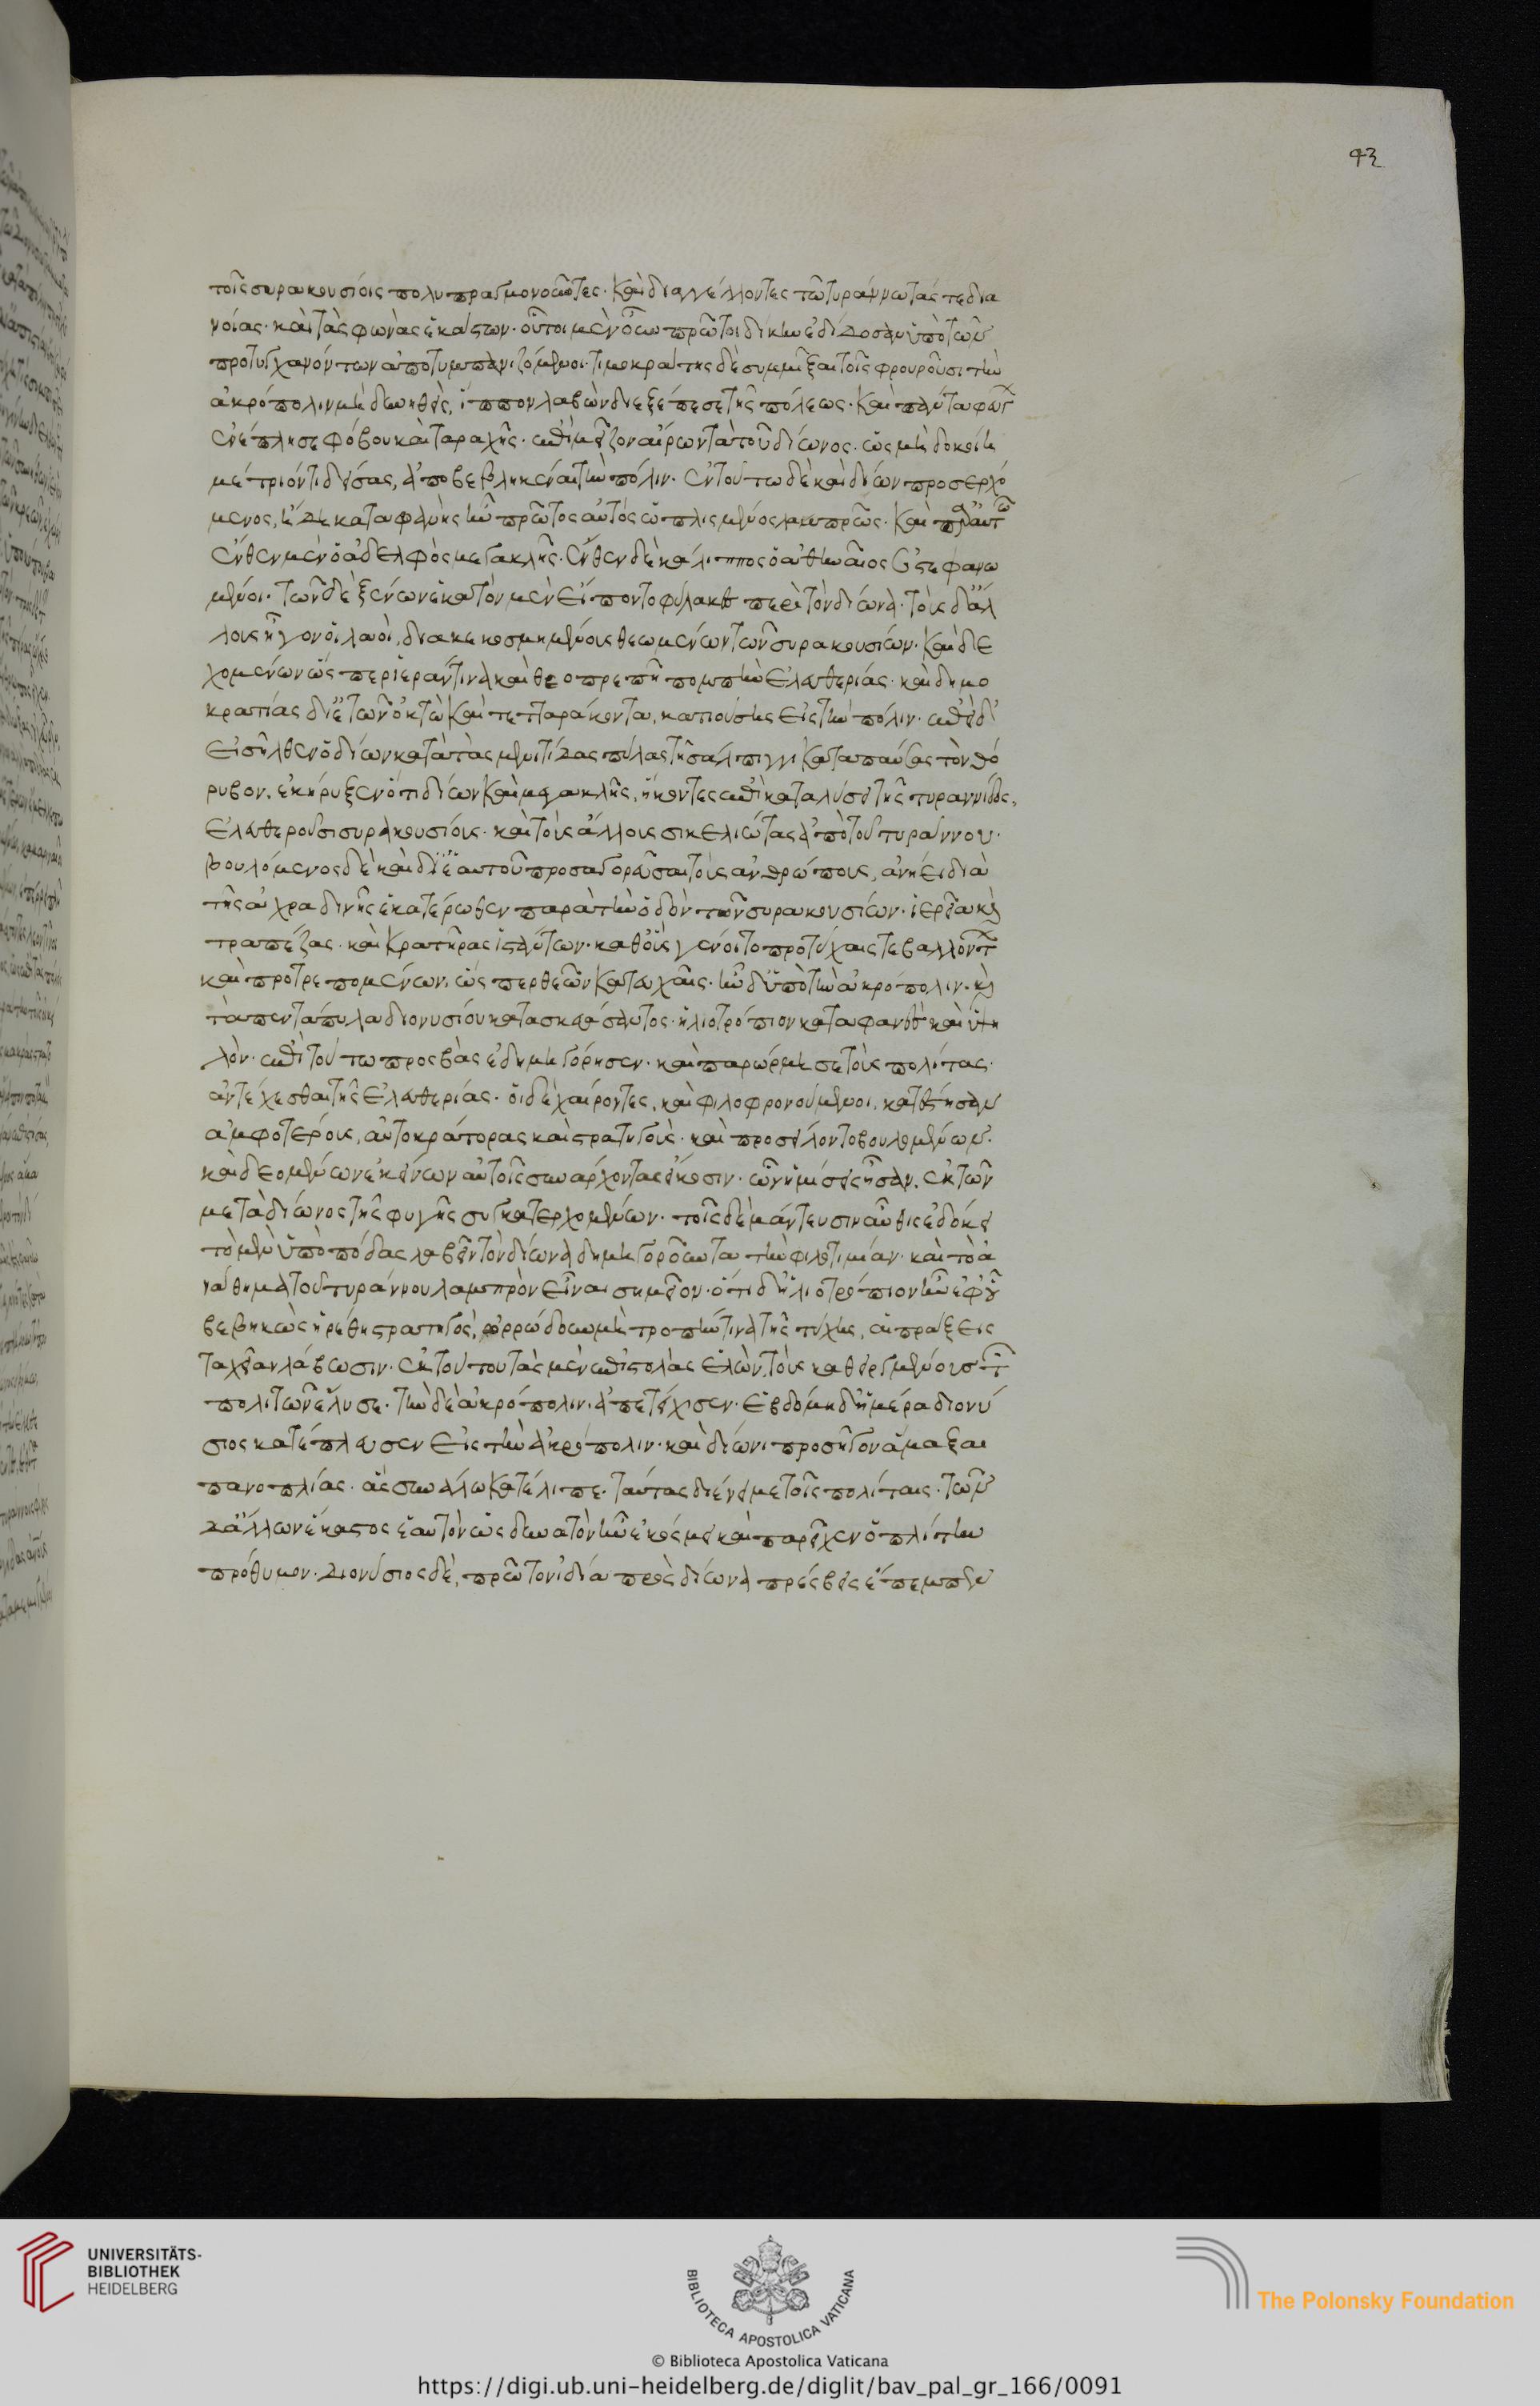 43
τοῖς συρακουσίοις πολυπραγμονοῦντες· καὶ διαγγέλλοντες τῶ τυράννω τάς τε δια
νοίας· καὶ τὰς φωνὰς ἑκάστων· οὗτοι μὲν οὖν πρῶτοι δίκην ἐδίδοσαν ὑπὸ τῶν
προτυγχανόντων ἀποτυμπανιζόμενοι· τιμοκράτης δὲ συμμῖξαι τοῖς φρουροῦσι τὴν
ἀκρόπολιν μὴ δυνηθεὶς, ἵππον λαβὼν διεξέπεσε τῆς πόλεως· καὶ πάντα φεύγ
ἐνέπλησε φόβου καὶ ταραχῆς· ἐπὶ μεῖζον αἴρων τὰ τοῦ δίωνος· ὡς μὴ δοκοίη
μέτριόν τι δείσας, ἀποβεβληκέναι τὴν πόλιν· ἐν τούτω δὲ καὶ δίων προσερχό
μενος, ἤδη καταφανὴς ἦν πρῶτος αὐτὸς ὡπλισμένος λαμπρῶς· καὶ παρ αὐτ
ἔνθεν μὲν ὁ ἀδελφὸς μεγακλῆς· ἔνθεν δὲ κάλιππος ὁ ἀθηναῖος ἐστεφανω
μένοι· τῶν δὲ ξένων ἑκατὸν μὲν εἵποντο φύλακες περὶ τὸν δίωνα· τοὺς δ' ἄλ
λους ἦγον οἱ λοχαγοὶ, διακεκοσμημένους θεωμένων τῶν συρακουσίων· καὶ δε
χομένων ὥσπερ ἱεράν τινα καὶ θεοπρεπῆ πομπὴν ἐλευθερίας· καὶ δημο
κρατίας δι' ἐτῶν ὀκτὼ καὶ τετταράκοντα, κατιούσης εἰς τὴν πόλιν· ἐπεὶ δ'
εἰσῆλθεν ὁ δίων κατὰ τὰς μενιτίδας πύλας τῆ σάλπιγγι καταπαύσας τὸν θό
ρυβον, ἐκήρυξεν ὅτι δίων καὶ μεγακλῆς, ἥκοντες ἐπὶ καταλύσει τῆς τυραννίδος,
ἐλευθεροῦσι συρακουσίους· καὶ τοὺς ἄλλους σικελιώτας ἀπὸ τοῦ τυράννου·
βουλόμενος δὲ καὶ δι' ἑαυτοῦ προσαγορεῦσαι τοὺς ἀνθρώπους, ἀνήει διὰ
τῆς ἀχραδινῆς ἑκατέρωθεν παρὰ τὴν ὁδὸν τῶν συρακουσίων· ἱερεῖα καὶ
τραπέζας· καὶ κρατῆρας ἱστάντων· καθ' οὓς γένοιτο προτύχαις τε βαλλόντ
καὶ προτρεπομένων, ὥσπερ θεῶν κατευχαῖς· ἦν δ' ὑπὸ τὴν ἀκρόπολιν· καὶ
τὰ πεντάπυλα διονυσίου κατασκευάσαντος· ἡλιοτρόπιον καταφανὲς καὶ ὑψη
λὸν· ἐπὶ τούτω προσβὰς ἐδημηγόρησεν· καὶ παρώρμησε τοὺς πολίτας·
ἀντέχεσθαι τῆς ἐλευθερίας· οἱ δὲ χαίροντες, καὶ φιλοφρονούμενοι, κατέστησαν
ἀμφοτέρους, αὐτοκράτορας καὶ στρατηγούς· καὶ προσείλοντο βουλομένων·
καὶ δεομένων ἐκείνων αὐτοῖς συνάρχοντας εἴκοσιν· ὧν ἡμίσεις ἦσαν, ἐκ τῶν
μετὰ δίωνος τῆς φυγῆς συγκατερχομένων· τοῖς δὲ μάντευσιν αὖθις ἐδόκει
τὸ μὲν ὑπὸ πόδας λαβεῖν τὸν δίωνα δημηγοροῦντα τὴν φιλοτιμίαν· καὶ τὸ ἀ
νάθημα τοῦ τυράννου λαμπρὸν εἶναι σημεῖον· ὅτι δ' ἡλιοτρόπιον ἦν ἐφ' οὗ
βεβηκὼς ἡρέθη στρατηγὸς, ὀρρώδουν μὴ τροπήν τινα τῆς τύχης, αἱ πράξεις
ταχεῖαν λάβωσιν· ἐκ τούτου τὰς μὲν ἐπιπολὰς ἑλὼν, τοὺς καθειργμένους τ
πολιτῶν ἔλυσε· τὴν δὲ ἀκρόπολιν, ἀπετείχισεν· ἑβδόμη δ' ἡμέρα διονύ
σιος κατέπλευσεν εἰς τὴν ἀκρόπολιν· καὶ δίωνι προσῆγον ἅμαξαι
πανοπλίας· ἃς συνάλω κατέλιπε· ταύτας διένειμε τοῖς πολίταις· τῶν
δ' ἄλλων ἕκαστος ἑαυτὸν ὡς δυνατὸν ἦν ἐκόσμει καὶ παρεῖχεν ὁπλίτην
πρόθυμον· διονύσιος δὲ, πρῶτον ἰδία πρὸς δίωνα πρέσβεις ἔπεμπεν
UNIVERSITÄTS-
BIBLIOTHEK
HEIDELBERG
BIBLIOTECA APOSTOLICA VATICANA
The Polonsky Foundation
© Biblioteca Apostolica Vaticana
https://digi.ub.uni-heidelberg.de/diglit/bav_pal_gr_166/0091